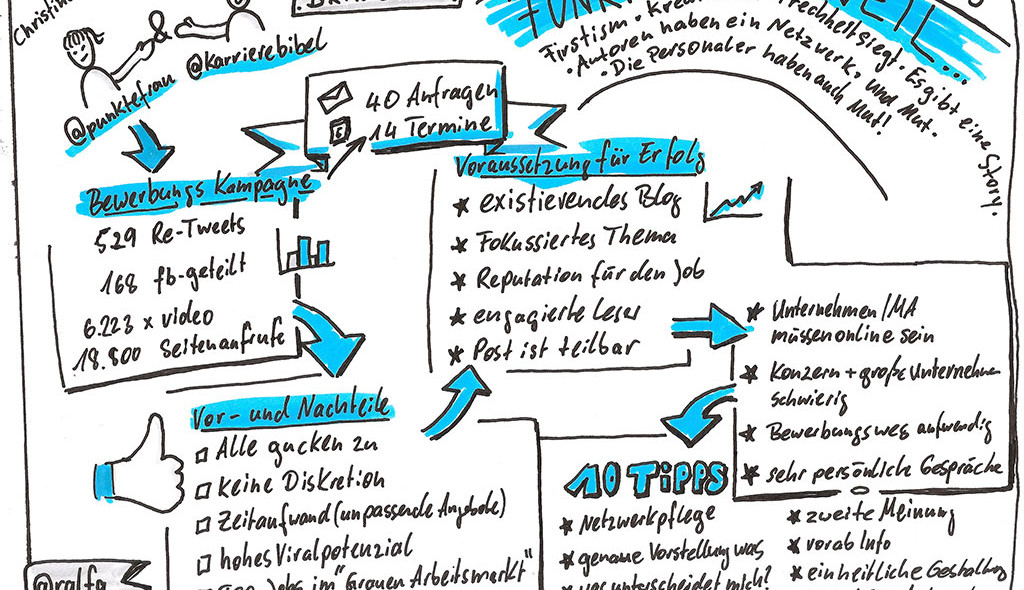 Christin
@karrierebibel
@punktefrau
Firstism. Frechheitsiegt. Es gibt eine Story.
• Autoren haben ein Netzwerk, und Mut.
• Die Personaler haben auch Mut!
40 Anfragen
14 Termine
Bewerbungs Kampagne
529 Re-Tweets
168 fb-geteilt
6.223 x video
18.800 Seitenaufrufe
Voraussetzung für Erfolg
existierendes Blog
Fokussiertes Thema
Reputation für den Job
engagierte Leser
Post ist teilbar
Unternehmen/MA
müssen online sein
Konzern + große Unternehmen
schwierig
Bewerbungsweg aufwendig
sehr persönliche Gespräche
Vor- und Nachteile
Alle gucken zu
keine Diskretion
Zeitaufwand (unpassende Angebote)
hohes Viralpotenzial
Jobs im "Grauen Arbeitsmarkt"
@ralfa
10 TIPPS
Netzwerkpflege
genaue Vorstellung was
was unterscheidet mich?
zweite Meinung
vorab Info
einheitliche Gestaltung